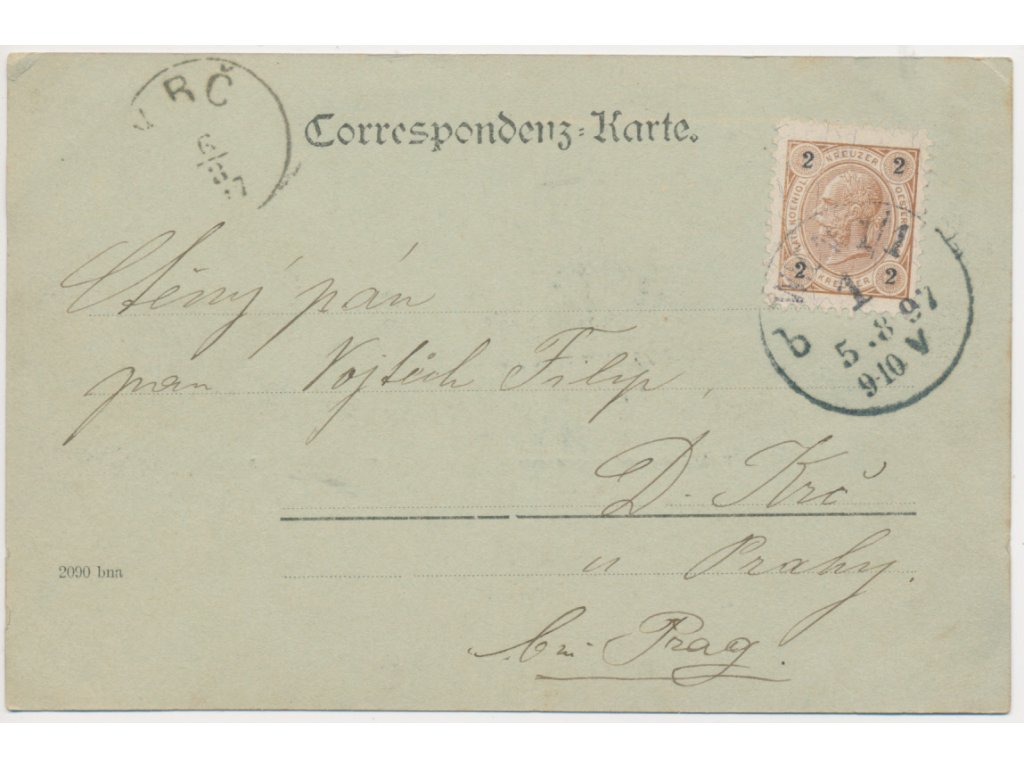 KRČ
6/8
97
Correspondenz-Karte.
2 KREUZER 2
2 KREUZER 2
1
b
5.8.97
9-10 V
Ctěný pán
pan Vojtěch Filip,
D. Krč
u Prahy.
bei Prag.
2090 bna